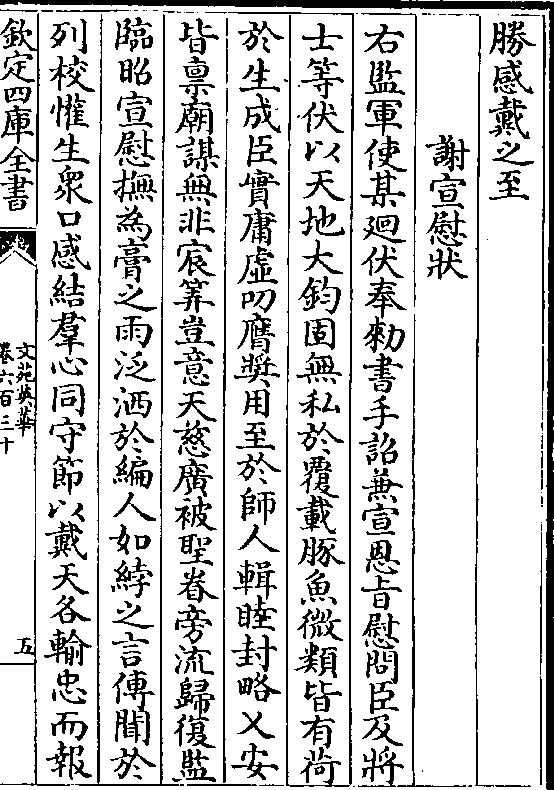 勝感戴之至
謝宣慰狀
右監軍使某廻伏奉勑書手詔兼宣恩旨慰問臣及將
士等伏以天地大鈞固無私於覆載豚魚微類皆有荷
於生成臣實庸虛叨膺奬用至於師人輯睦封略乂安
皆禀廟謀無非宸筭豈意天慈廣被聖眷旁流歸復監
臨昭宣慰撫為膏之雨泛洒於編人如綍之言傳聞於
列校懽生衆口感結羣心同守節以戴天各輸忠而報
欽定四庫全書
文苑英華
卷六百三十
五